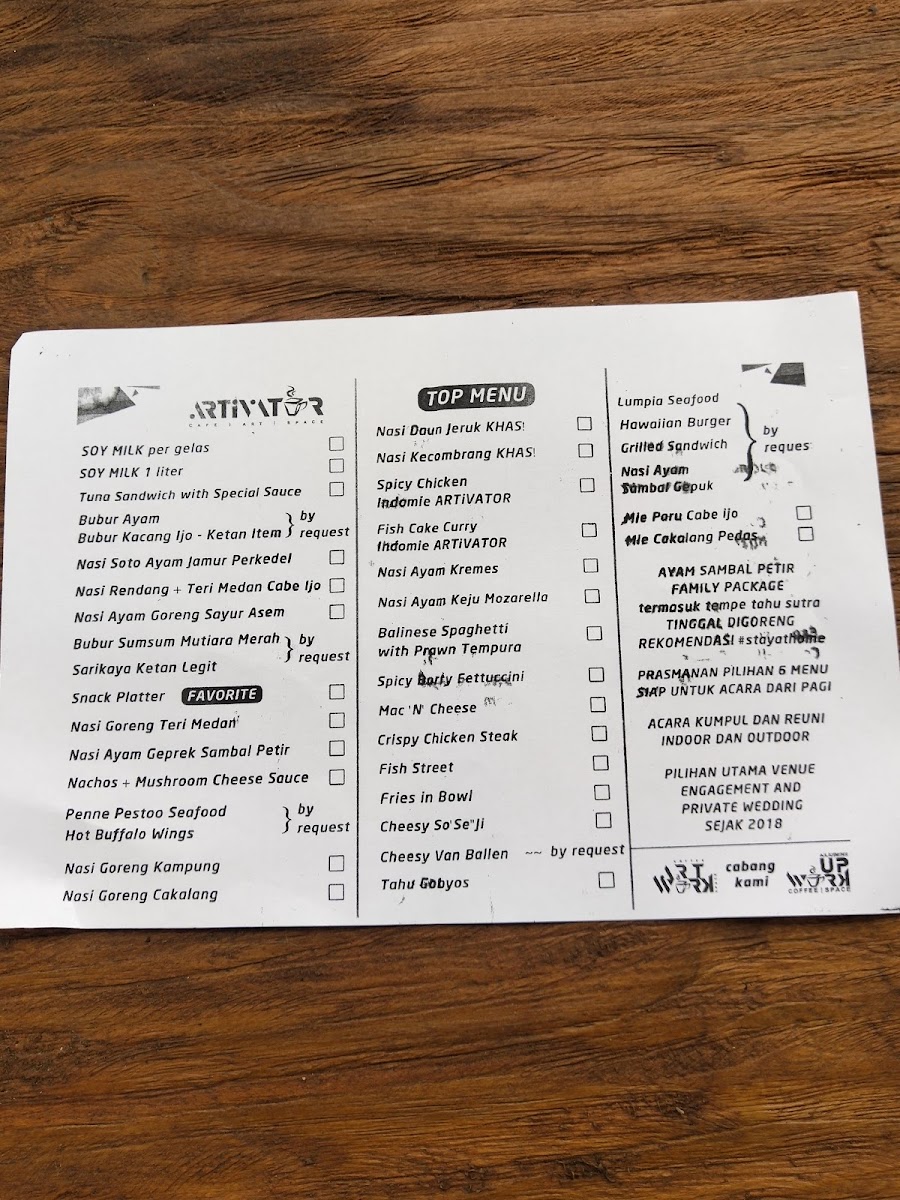 ARTiVATOR
CAFE | ART | SPACE
SOY MILK per gelas
SOY MILK 1 liter
Tuna Sandwich with Special Sauce
Bubur Ayam
Bubur Kacang Ijo - Ketan Item
by
request
Nasi Soto Ayam Jamur Perkedel
Nasi Rendang + Teri Medan Cabe Ijo
Nasi Ayam Goreng Sayur Asem
Bubur Sumsum Mutiara Merah
Sarikaya Ketan Legit
by
request
Snack Platter FAVORITE
Nasi Goreng Teri Medan
Nasi Ayam Geprek Sambal Petir
Nachos + Mushroom Cheese Sauce
Penne Pestoo Seafood
Hot Buffalo Wings
by
request
Nasi Goreng Kampung
Nasi Goreng Cakalang
TOP MENU
Nasi Daun Jeruk KHAS!
Nasi Kecombrang KHAS!
Spicy Chicken
Indomie ARTiVATOR
Fish Cake Curry
Indomie ARTiVATOR
Nasi Ayam Kremes
Nasi Ayam Keju Mozarella
Balinese Spaghetti
with Prawn Tempura
Spicy Fettuccini
Mac 'N' Cheese
Crispy Chicken Steak
Fish Street
Fries in Bowl
Cheesy So'Se"Ji
Cheesy Van Ballen ~~ by request
Tahu
Lumpia Seafood
Hawaiian Burger
Grilled Sandwich
Nasi Ayam
Sambal Gepuk
by
reques
Mie Paru Cabe ijo
Mie Cakalang Pedas
AYAM SAMBAL PETIR
FAMILY PACKAGE
termasuk tempe tahu sutra
TINGGAL DIGORENG
REKOMENDASI #stayathome
PRASMANAN PILIHAN 6 MENU
SIAP UNTUK ACARA DARI PAGI
ACARA KUMPUL DAN REUNI
INDOOR DAN OUTDOOR
PILIHAN UTAMA VENUE
ENGAGEMENT AND
PRIVATE WEDDING
SEJAK 2018
ART
WORK
cabang
kami
UP
WORK
COFFEE | SPACE